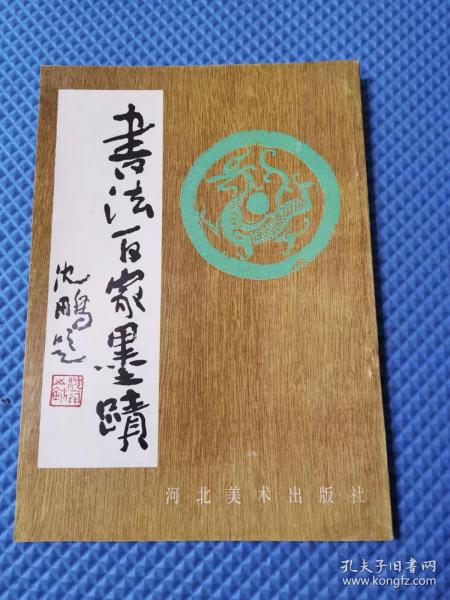 書法百家墨蹟
沈鹏题
河北美术出版社
孔夫子旧书网
www.kongfz.com